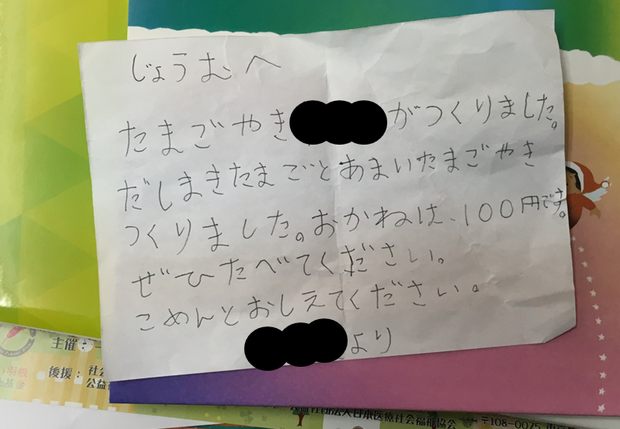 じょうむへ
たまごやき
がつくりました。
だしまきたまごとあまいたまごやき
つくりました。おかねは、100円です。
ぜひたべてください。
こめんとおしえてください。
より
主催：
後援：社会
公益
日本医療社会福祉協会
〒108-0075